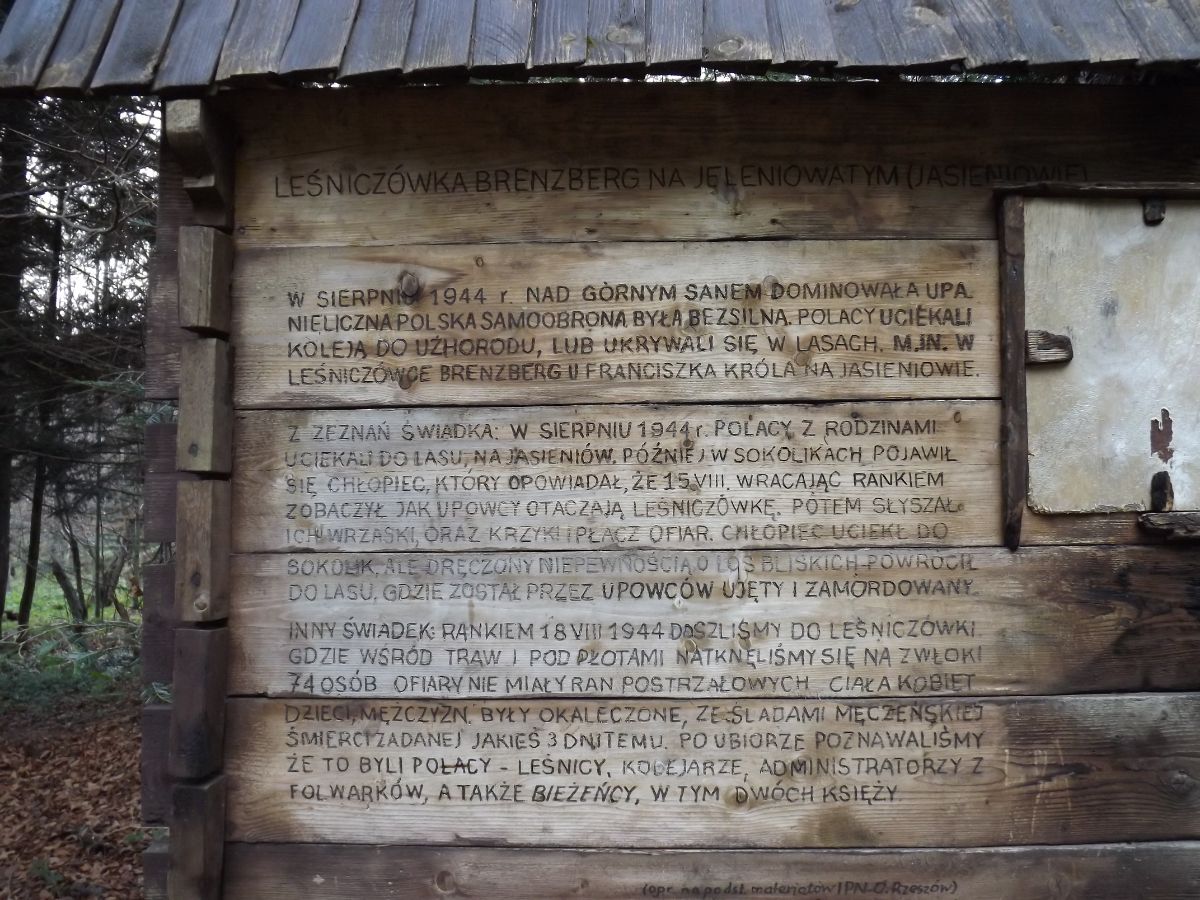 LEŚNICZÓWKA BRENZBERG NA JELENIOWATYM (JASIENIOWIE)
W SIERPNIU 1944 r. NAD GÓRNYM SANEM DOMINOWAŁA UPA.
NIELICZNA POLSKA SAMOOBRONA BYŁA BEZSILNA. POLACY UCIEKALI
KOLEJĄ DO UŻHORODU, LUB UKRYWALI SIĘ W LASACH. M.IN. W
LEŚNICZÓWCE BRENZBERG U FRANCISZKA KRÓLA NA JASIENIOWIE.
Z ZEZNAŃ ŚWIADKA: W SIERPNIU 1944 r. POLACY Z RODZINAMI
UCIEKALI DO LASU, NA JASIENIÓW. PÓŹNIEJ W SOKOLIKACH POJAWIŁ
SIĘ CHŁOPIEC, KTÓRY OPOWIADAŁ, ŻE 15.VIII. WRACAJĄC RANKIEM
ZOBACZYŁ JAK UPOWCY OTACZAJĄ LEŚNICZÓWKĘ. POTEM SŁYSZAŁ
ICH WRZASKI, ORAZ KRZYKI I PŁACZ OFIAR. CHŁOPIEC UCIEKŁ DO
SOKOLIK, ALE DRĘCZONY NIEPEWNOŚCIĄ O LOS BLISKICH POWRÓCIŁ
DO LASU, GDZIE ZOSTAŁ PRZEZ UPOWCÓW UJĘTY I ZAMORDOWANY.
INNY ŚWIADEK: RANKIEM 18 VIII 1944 DOSZLIŚMY DO LEŚNICZÓWKI.
GDZIE WŚRÓD TRAW I POD PŁOTAMI NATKNĘLIŚMY SIĘ NA ZWŁOKI
74 OSÓB. OFIARY NIE MIAŁY RAN POSTRZAŁOWYCH. CIAŁA KOBIET
DZIECI, MĘŻCZYZN. BYŁY OKALECZONE, ZE ŚLADAMI MĘCZEŃSKIEJ
ŚMIERCI ZADANEJ JAKIEŚ 3 DNI TEMU. PO UBIORZE POZNAWALIŚMY
ŻE TO BYLI POLACY - LEŚNICY, KOLEJARZE, ADMINISTRATORZY Z
FOLWARKÓW, A TAKŻE BIEŻEŃCY, W TYM DWÓCH KSIĘŻY.
(opr. na podst. materiałów IPN-O. Rzeszów)